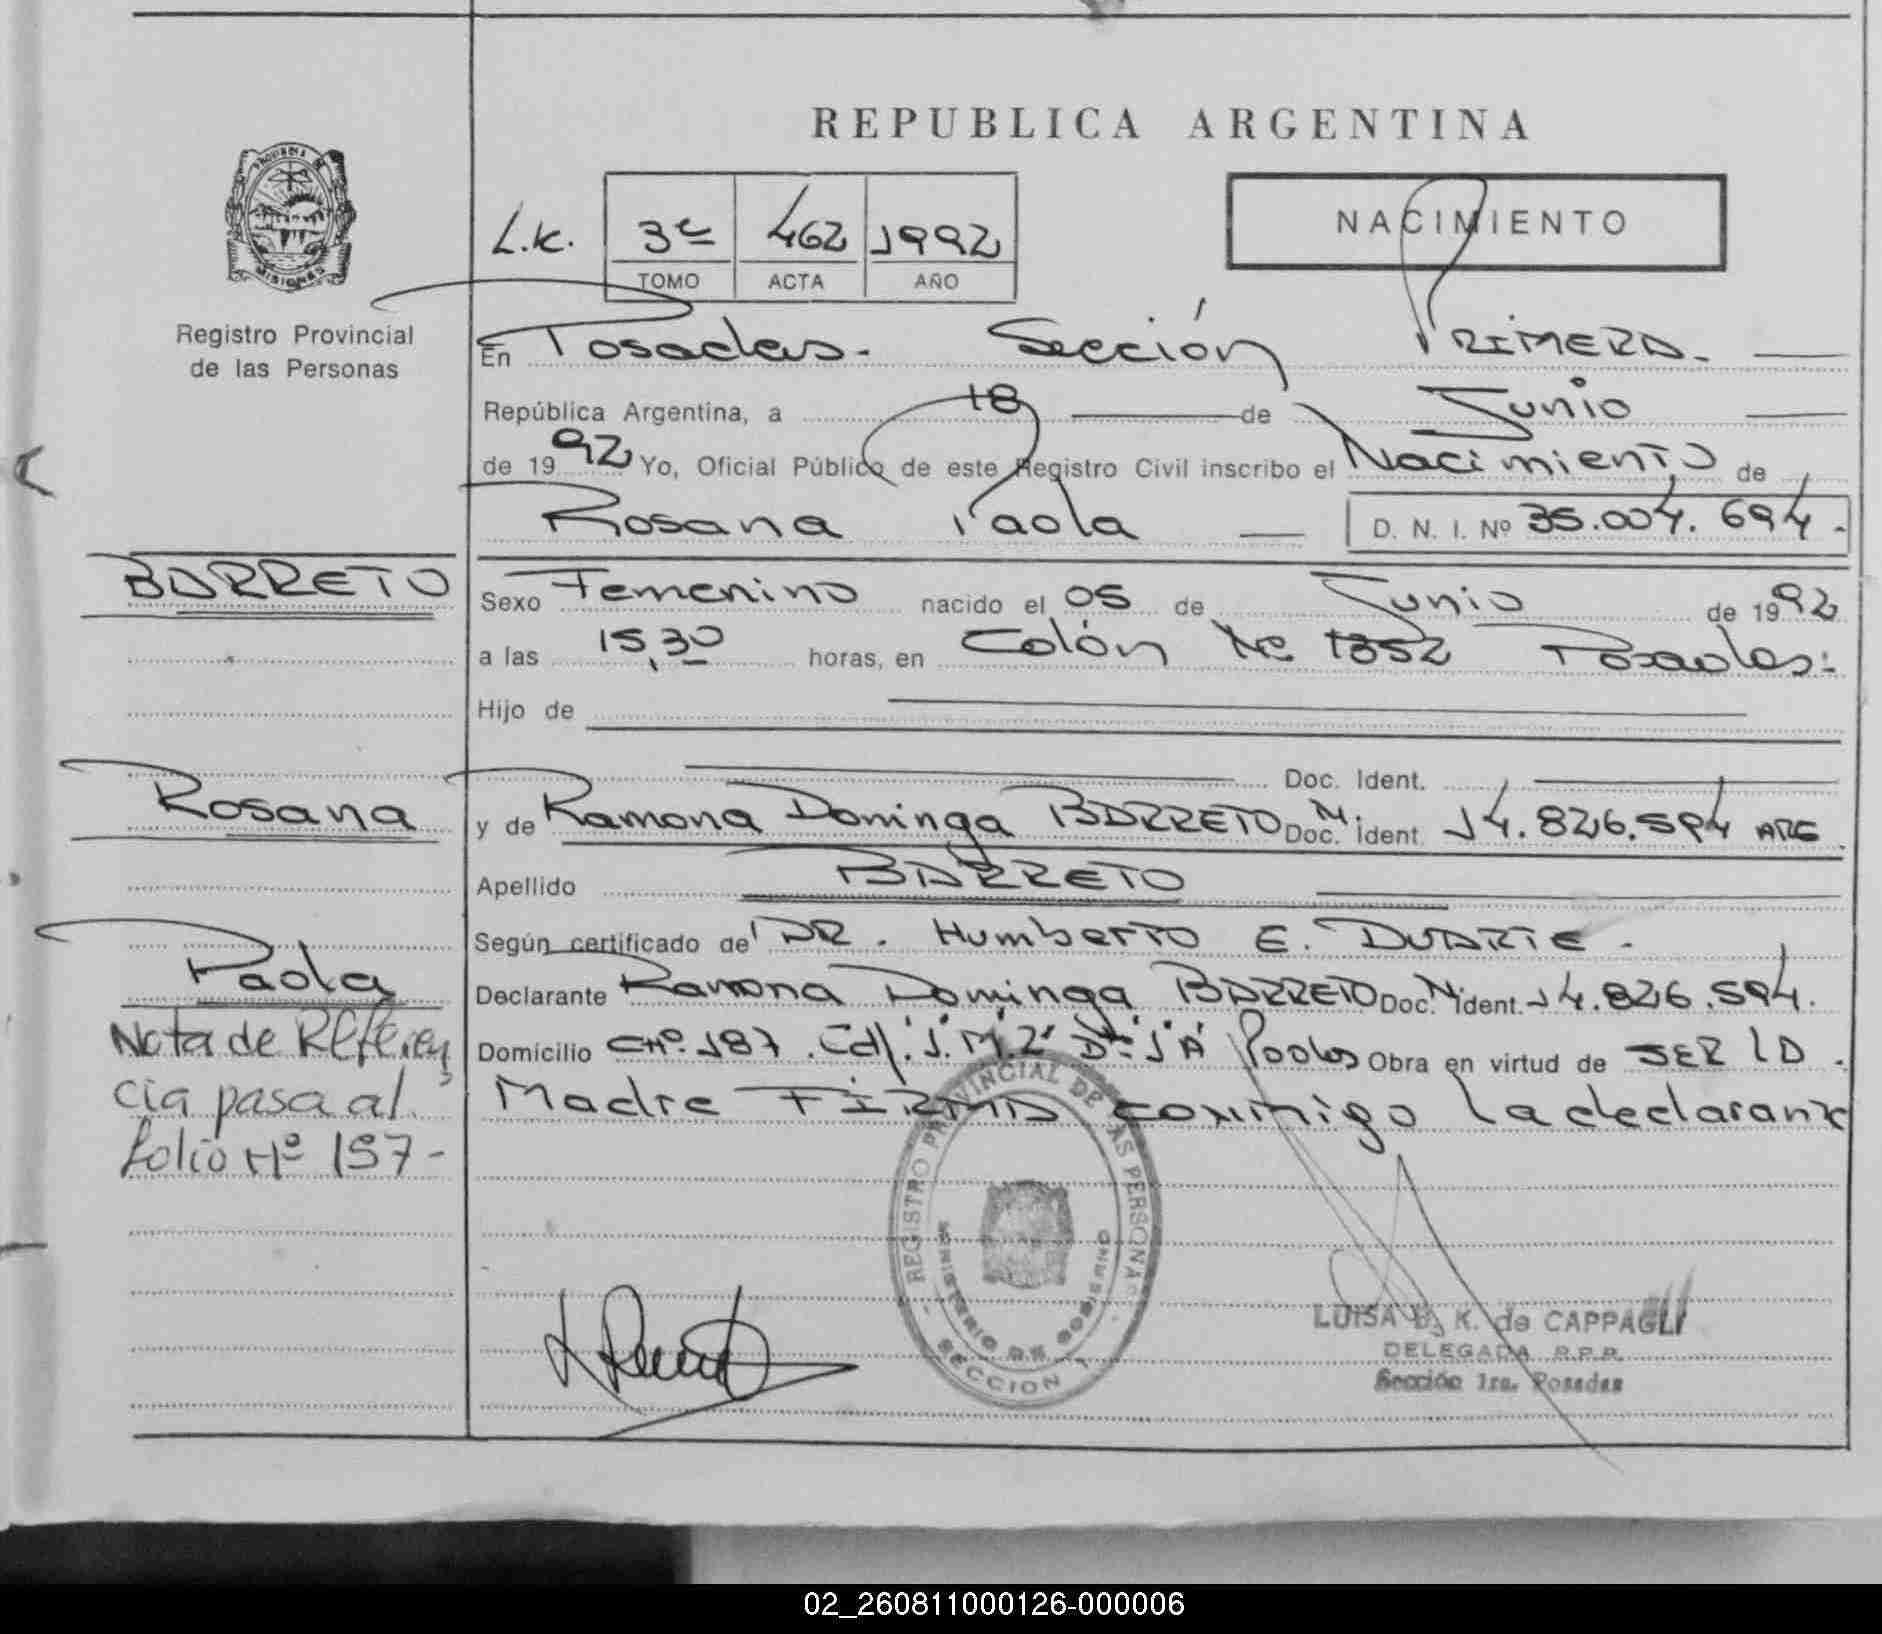 REPUBLICA ARGENTINA
PROVINCIA DE
MISIONES
Registro Provincial
de las Personas
L.K.
3º 462 1992
TOMO ACTA AÑO
NACIMIENTO
En Posadas. Sección PRIMERA.
República Argentina, a 18 de Junio
de 1992 Yo, Oficial Público de este Registro Civil inscribo el Nacimiento de
Rosana Paola D. N. I. Nº 35.004.694.
BARRETO
Sexo Femenino nacido el 05 de Junio de 1992
a las 15,30 horas, en Colón Nº 1352 Posadas.
Hijo de
Doc. Ident.
Rosana
y de Ramona Dominga BARRETO Doc. N. Ident. 14.826.594 ARG
Apellido BARRETO
Según certificado de DR. Humberto E. DUARTE.
Paola
Declarante Ramona Dominga BARRETO Doc. N. Ident. 14.826.594.
Domicilio CHº. 187. Obra en virtud de SER LA
Madre FIRMA conmigo La declarante
Nota de Referen
cia pasa al
folio Nº 157-
REGISTRO PROVINCIAL DE LAS PERSONAS
MINISTERIO DE GOBIERNO
SECCION 1
LUISA K. de CAPPAGLI
DELEGADA R.P.P.
Sección 1ra. Posadas
02_260811000126-000006